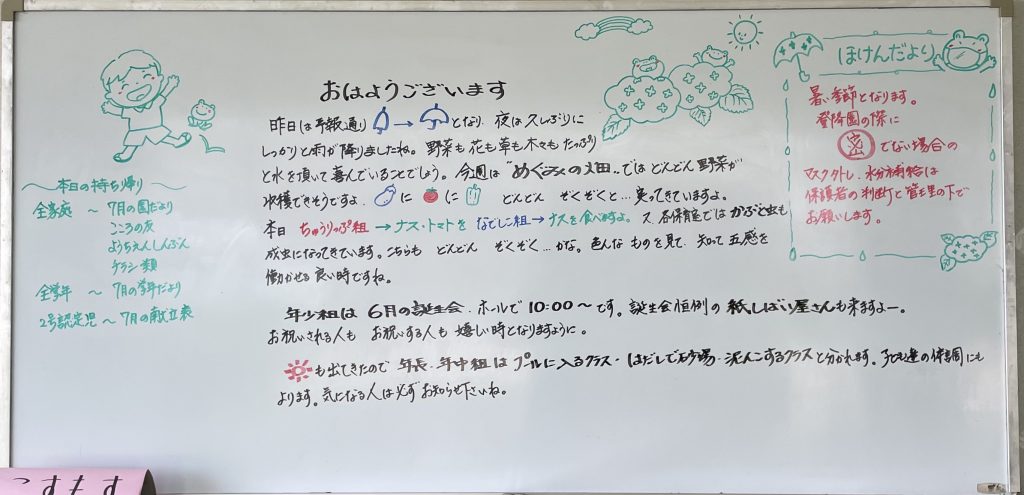 おはようございます
昨日は予報通り → となり、夜は久しぶりに
しっかりと雨が降りましたね。野菜も花も草も木々もたっぷり
と水を頂いて喜んでいることでしょう。今週は"めぐみの畑"ではどんどん野菜が
収穫できそうですよ。 に に どんどん ぞくぞくと…実ってきていますよ。
本日 ちゅうりっぷ組→ナス・トマトを なでしこ組→ナスを食べますよ。又、各保育室ではかぶと虫も
成虫になってきています。こちらも どんどん ぞくぞく…かな。色んなものを見て、知って五感を
働かせる良い時ですね。
年少組は 6月の誕生会、ホールで10:00〜です。誕生会恒例の紙しばい屋さんも来ますよー。
お祝いされる人も お祝いする人も 嬉しい時となりますように。
も出てきたので 年長・年中組は プールに入るクラス・はだしで砂場・泥んこするクラスと分かれます。子ども達の体調にも
よります。気になる人は必ずお知らせ下さいね。
〜本日の持ち帰り〜
全家庭 〜 7月の園だより
こころの友
ようちえんしんぶん
チラシ類
全学年 〜 7月の学年だより
2号認定児〜7月の献立表
ほけんだより
暑い季節となります。
登降園の際に
密でない場合の
マスク外し、水分補給は
保護者の判断と管理の下で
お願いします。
こすもす